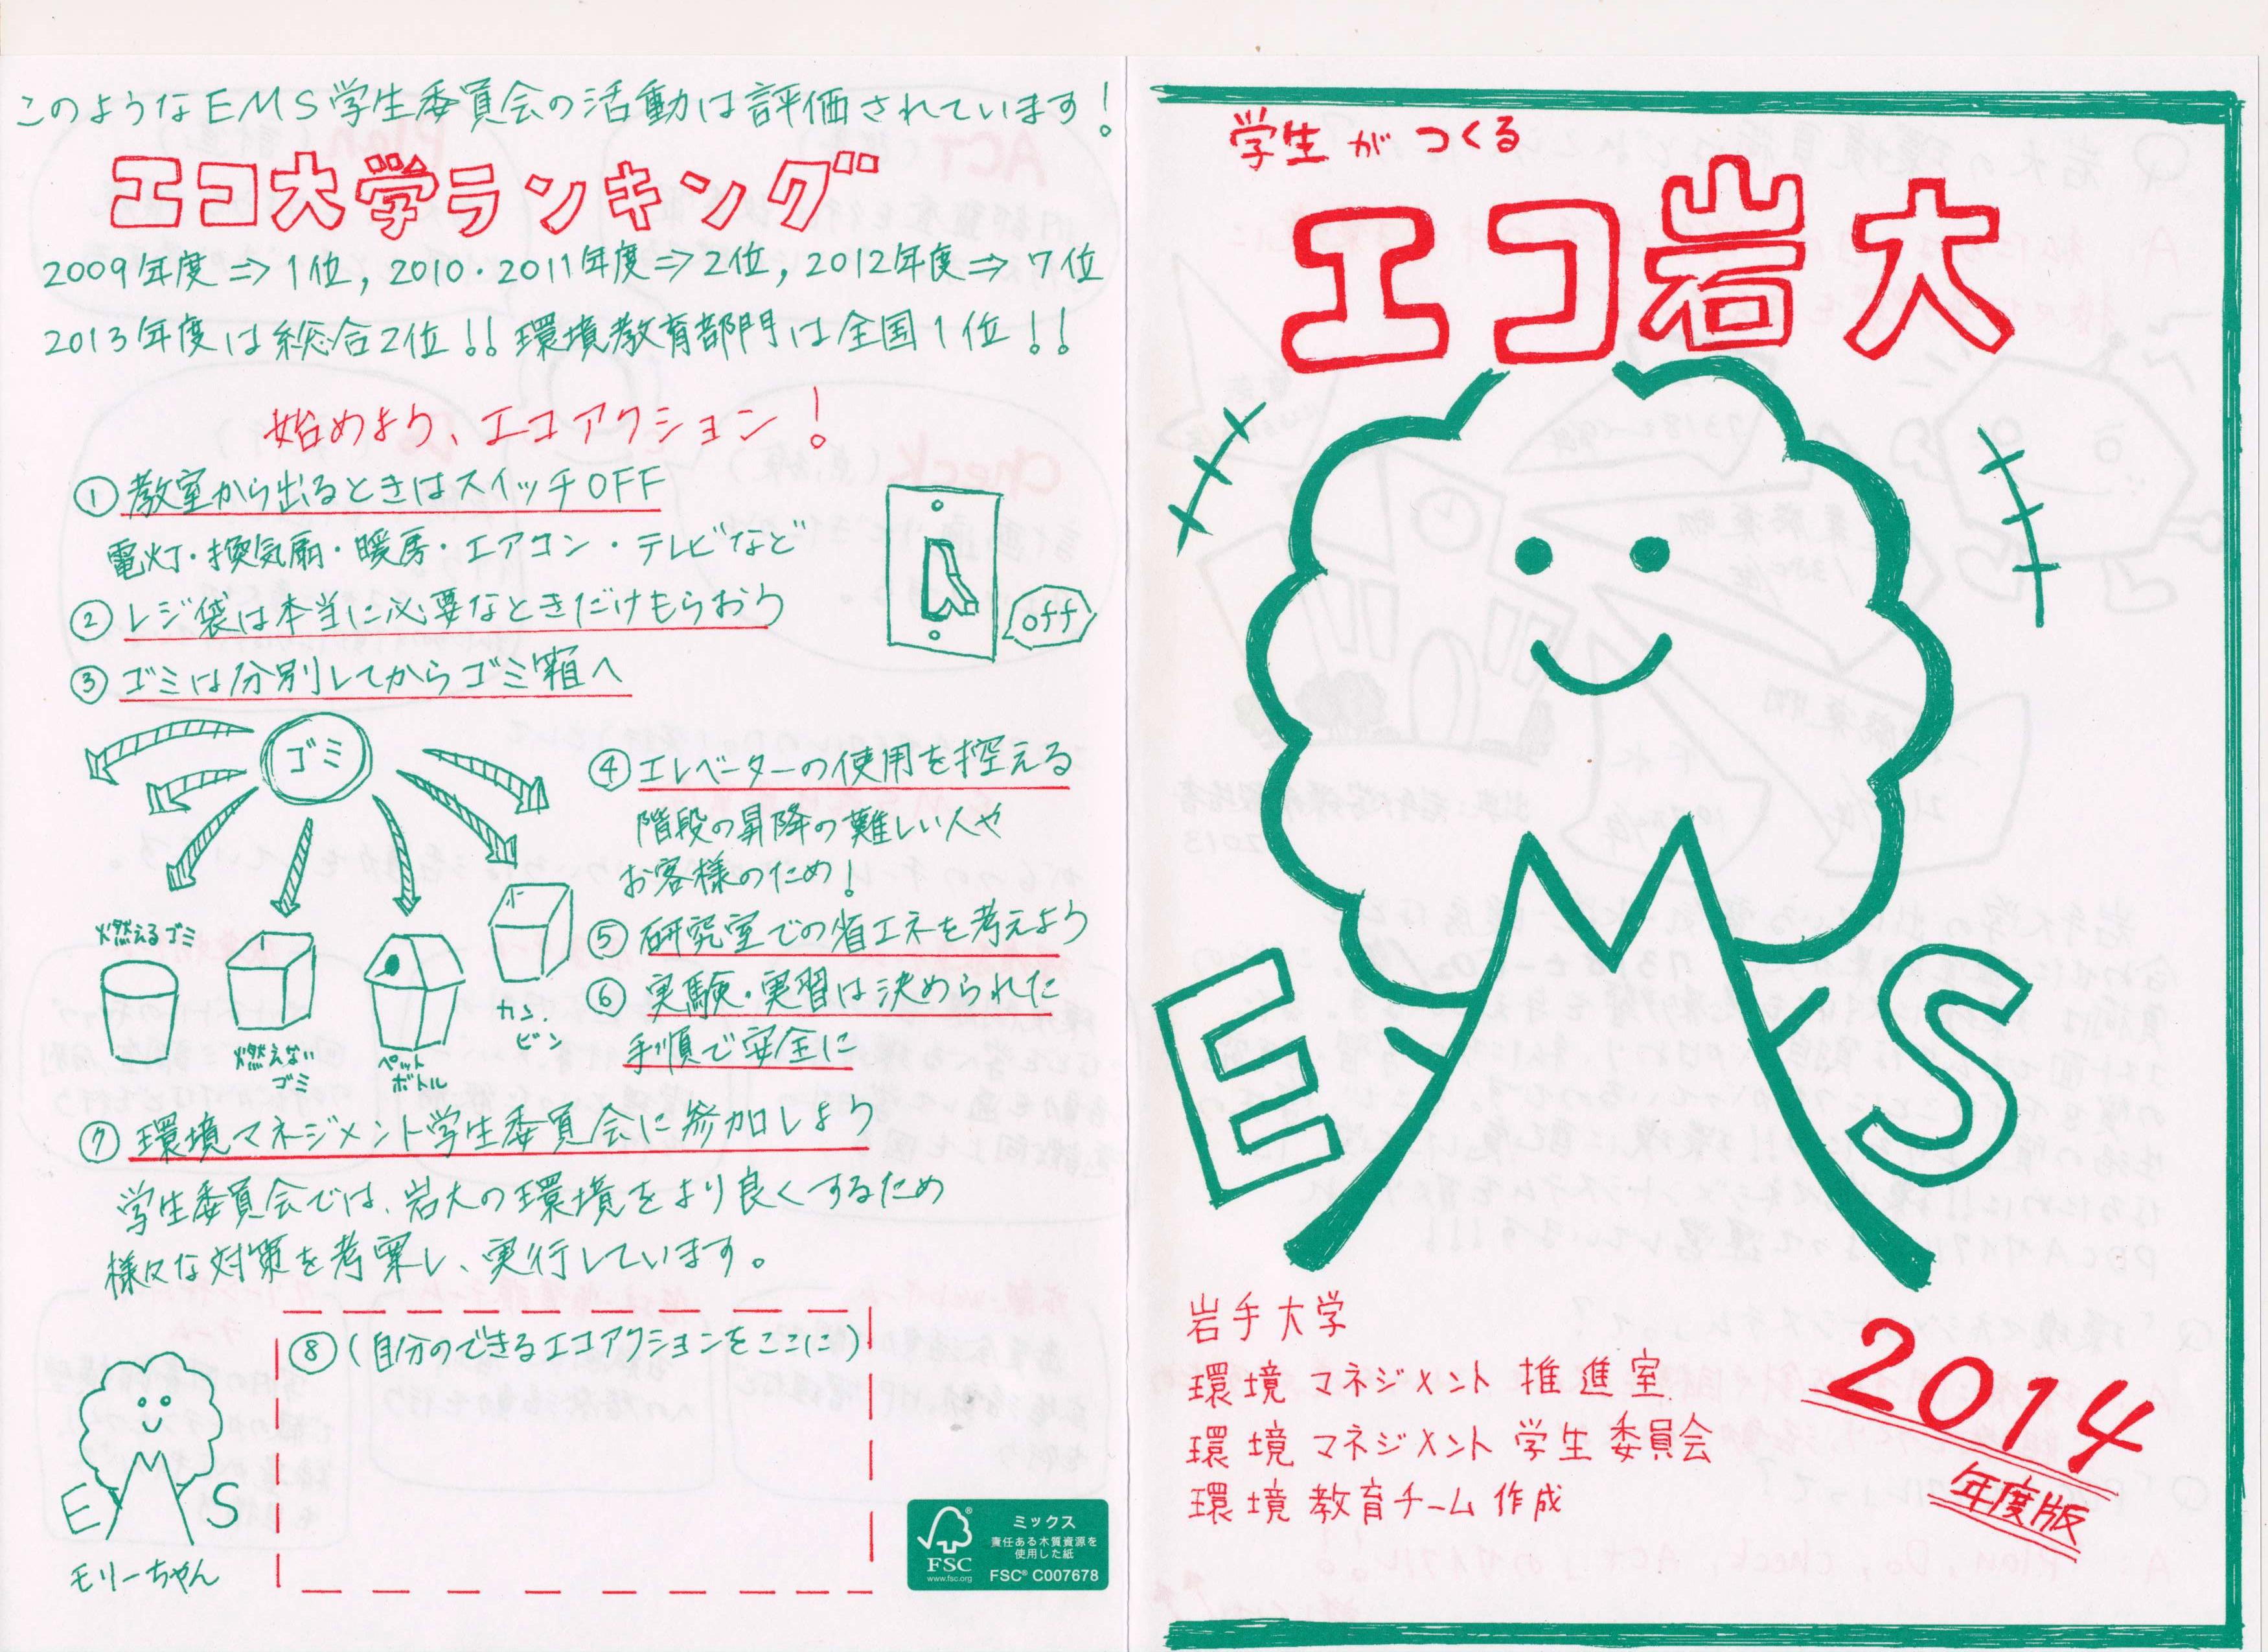 このようなEMS学生委員会の活動は評価されています!
エコ大学ランキング
2009年度⇒1位, 2010・2011年度⇒2位, 2012年度⇒7位
2013年度は総合2位!!環境教育部門は全国1位!!
始めよう、エコアクション!
①教室から出るときはスイッチOFF
電灯・換気扇・暖房・エアコン・テレビなど
②レジ袋は本当に必要なときだけもらおう
③ゴミは分別してからゴミ箱へ
off
ゴミ
燃えるゴミ
燃えない
ゴミ
ペット
ボトル
カン・
ビン
④エレベーターの使用を控える
階段の昇降の難しい人や
お客様のため!
⑤研究室での省エネを考えよう
⑥実験・実習は決められた
手順で安全に
⑦環境マネジメント学生委員会に参加しよう
学生委員会では、岩大の環境をより良くするため
様々な対策を考案し、実行しています。
⑧(自分のできるエコアクションをここに)
EMS
モリーちゃん
FSC
www.fsc.org
ミックス
責任ある木質資源を
使用した紙
FSC® C007678
学生がつくる
エコ岩大
EMS
岩手大学
環境マネジメント推進室
環境マネジメント学生委員会
環境教育チーム作成
2014
年度版